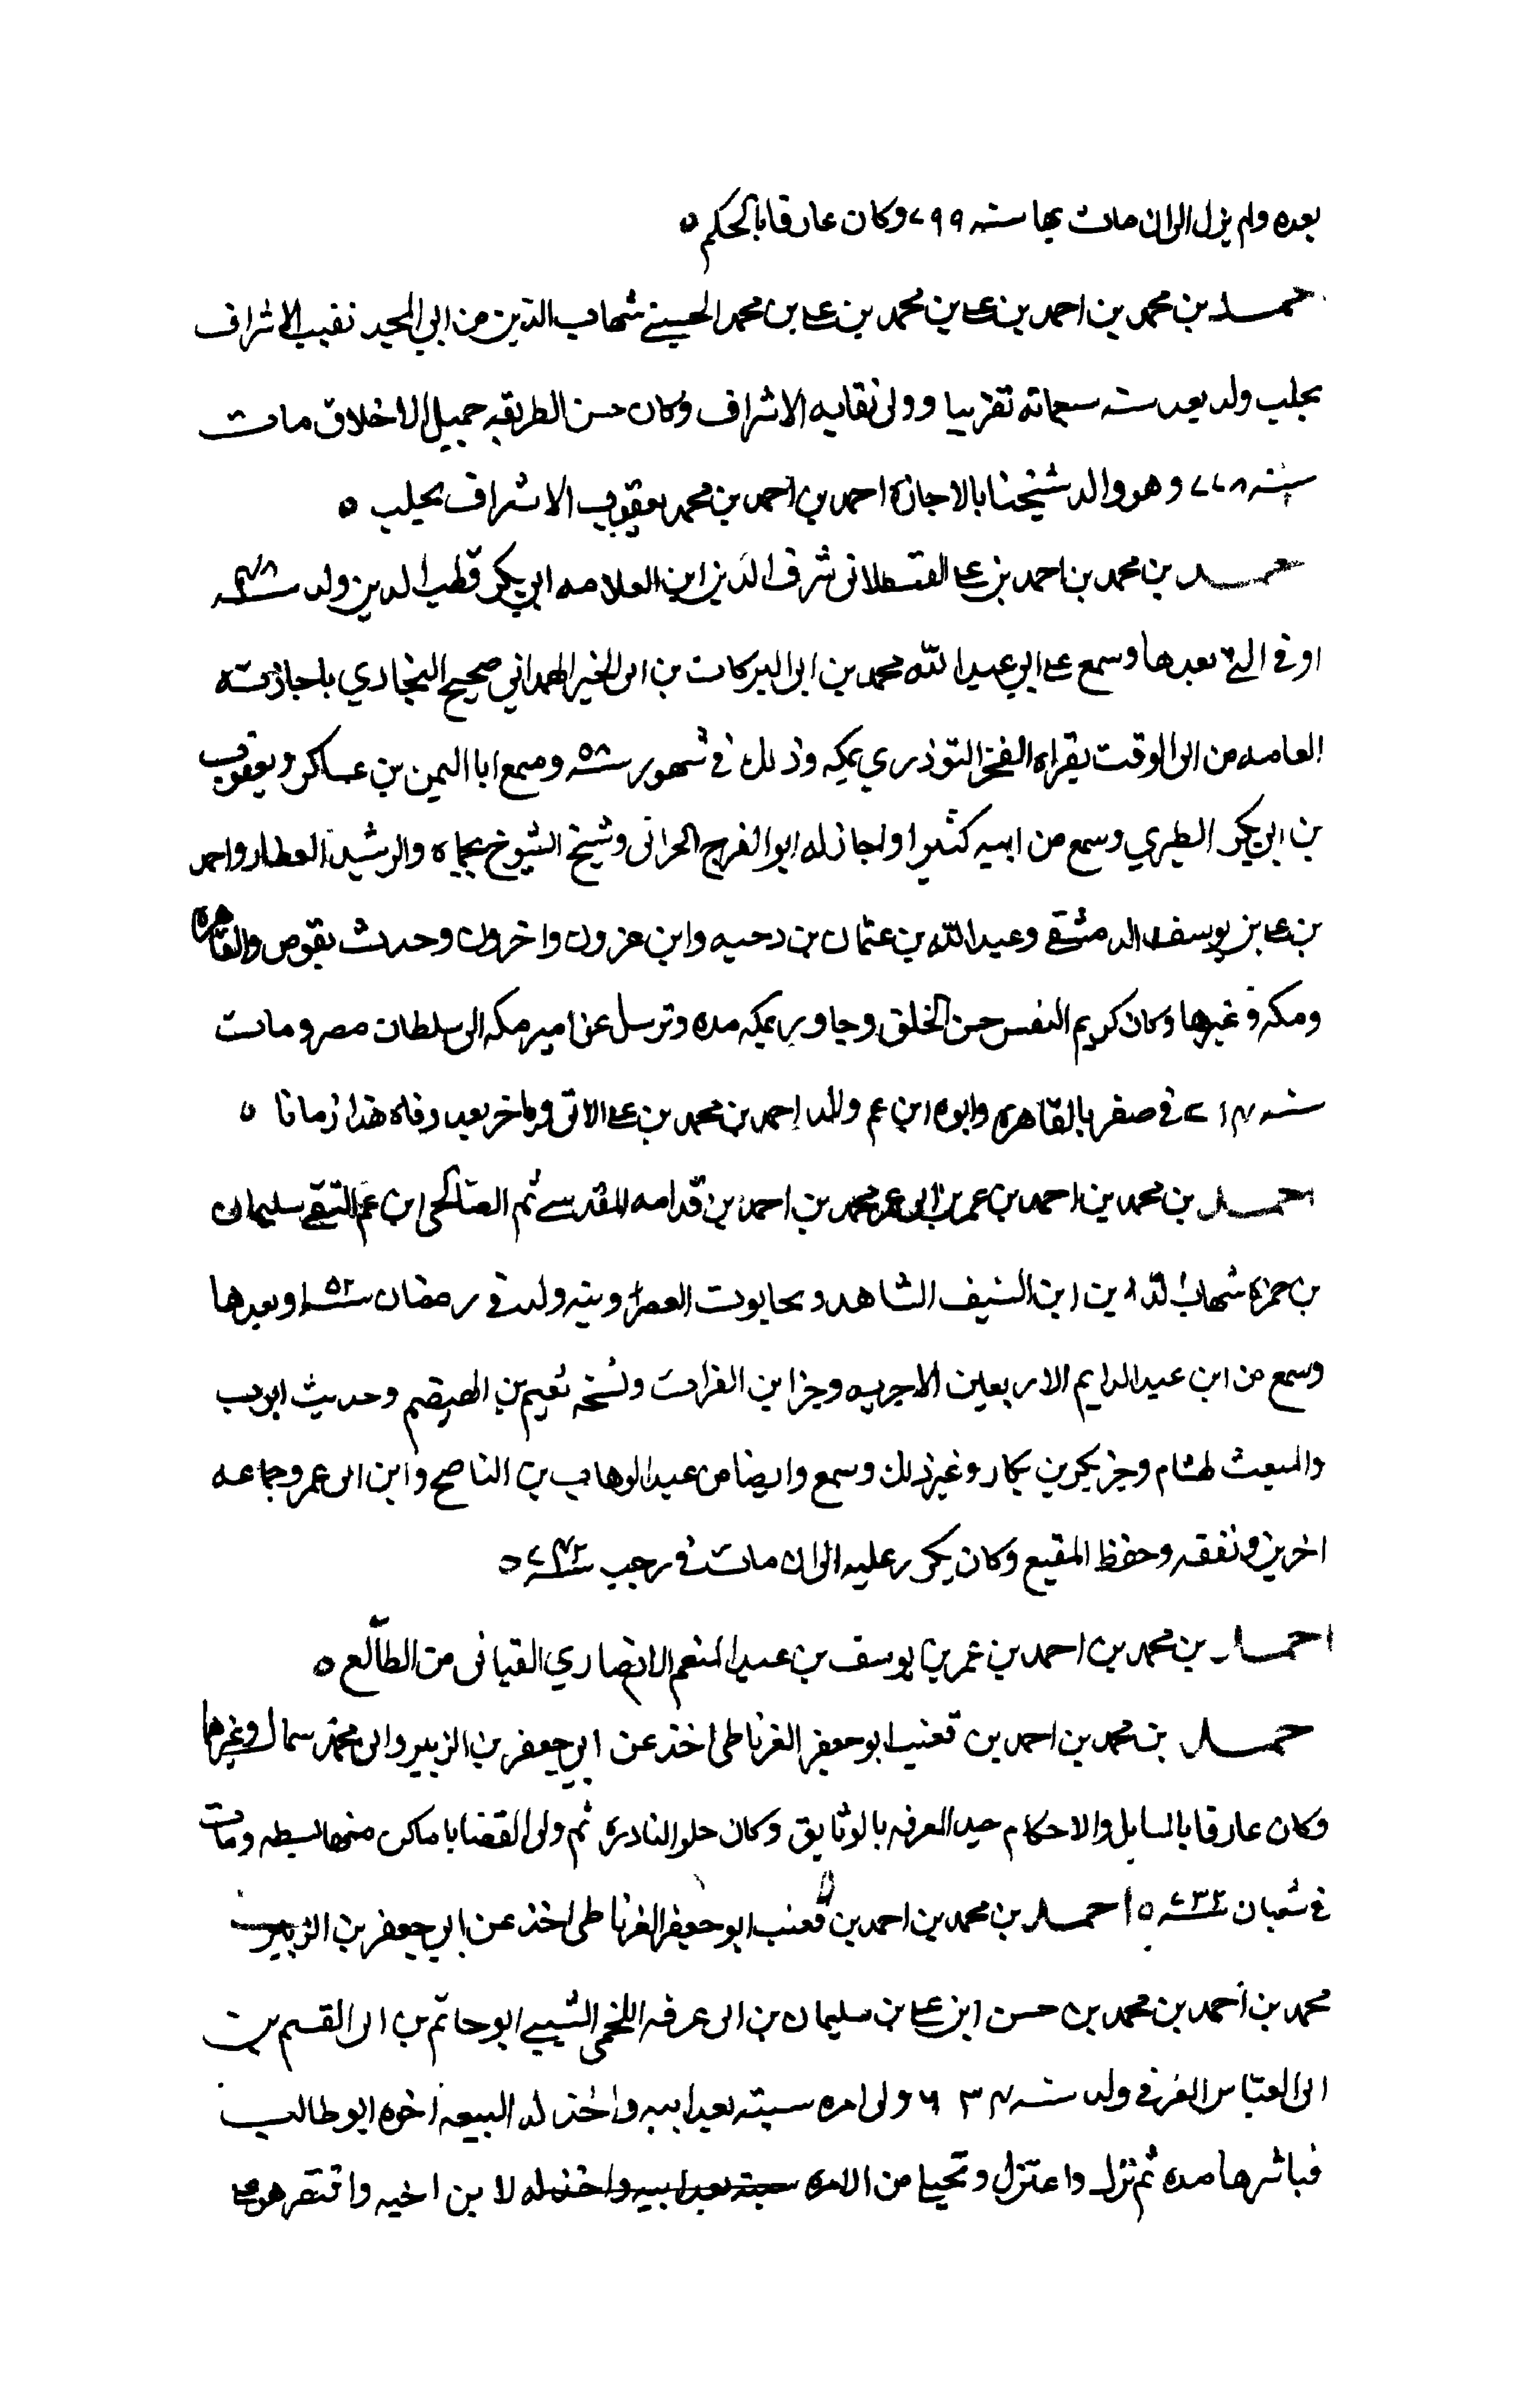 بعده ولم يزل الى ان مات بها سنه ٧٩٩ وكان عارفا بالحكم ه
احمد بن محمد بن احمد بن على بن محمد بن على بن محمد الحسينى شهاب الدين بن ابي المجد نقيب الاشراف
بحلب ولد بعد سنه سبعمائه تقريبا وولى نقابه الاشراف وكان حسن الطريقه جميل الاخلاق مات
سنه ٧٧٨ وهو والد شيخنا بالاجازة احمد بن احمد بن محمد الاشراف بحلب ه
احمد بن محمد بن احمد بن على القسطلانى شرف الدين ابن العلامه ابي بكر قطب الدين ولد سنه
او فى التى بعدها وسمع على ابي عبد الله محمد بن ابى البركات بن ابى الخير الهمداني صحيح البخاري باجازته
العامه من ابى الوقت بقراه الفخر التوزري بمكه وذلك في شهور سنه ٥٨ وسمع ابا اليمن بن عساكر ويعقوب
بن ابي بكر الطبري وسمع من ابيه كثيرا واجاز له ابو الفرج الحرانى وشيخ الشيوخ بحماه والرشيد العطار واحمد
بن على بن يوسف الدمشقى وعبد الله بن عثمان بن دحيه وابن عزون واخرون وحدث بقوص والقاهرة
ومكه وغيرها وكان كريم النفس حسن الخلق وجاور بمكه مده وترسل عن امير مكه الى سلطان مصر ومات
سنه ٧١٤ في صفر بالقاهرة وابوه ابن عم والد احمد بن محمد بن على الاتى وتاخر بعد وفاه هذا زمانا ه
احمد بن محمد بن احمد بن عمر بن ابى عمر محمد بن احمد بن قدامه المقدسى ثم الصالحى ابن عم التقى سليمان
بن حمزه شهاب الدين ابن السيف الشاهد ولد فى رمضان سنه ٥٢ او بعدها
وسمع من ابن عبد الدايم الاربعين الاجريه وجزا بن الفرات ونسخه نعيم بن الهيصم وحديث ايوب
والمبعث لهشام وجز بكر بن بكار وغير ذلك وسمع وايضا من عبد الوهاب بن الناصح وابن ابى عمر وجماعه
اخرين وتفقه وحفظ المقنع وكان يكرر عليه الى ان مات فى رجب سنه ه
احمد بن محمد بن احمد بن عمر بن يوسف بن عبد المنعم الانصاري القيانى من الطالع ه
احمد بن محمد بن احمد بن قعنب ابو جعفر الغرناطى اخذ عن ابي جعفر بن الزبير وابى محمد سمال وغيرها
وكان عارفا بالمسايل والاحكام جيد المعرفه بالوثايق وكان حلو النادره ثم ولى القضا باماكن منها بسطه ومات
في شعبان سنه ٧٣٢ ه احمد بن محمد بن احمد بن قعنب ابو جعفر الغرناطى اخذ عن ابي جعفر بن الزبير
محمد بن احمد بن محمد بن حسن ابن على بن سليمان بن ابى عرفه اللخمى السبتي ابو حاتم بن ابى القسم بن
ابى العباس العزفى ولد سنه ٦٣٤ وولى امره سبته بعد ابيه واخذ له البيعه اخوه ابو طالب
فباشرها مده ثم نزل واعتزل وتخيلى من الامرة سبته بعد ابيه واخذ له لا بن اخيه واقتصر هو على